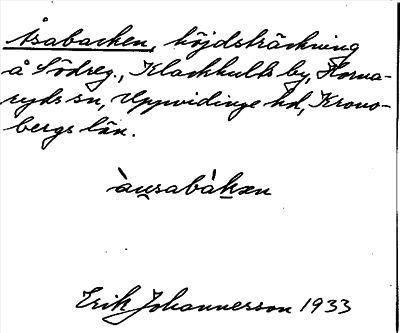 Åsabacken, höjdsträckning
å Södreg., Klackhults by, Herrå-
ryds sn, Uppvidinge hd, Krono-
bergs län.
àu̲sabàk̲æn
Erik Johannesson 1933